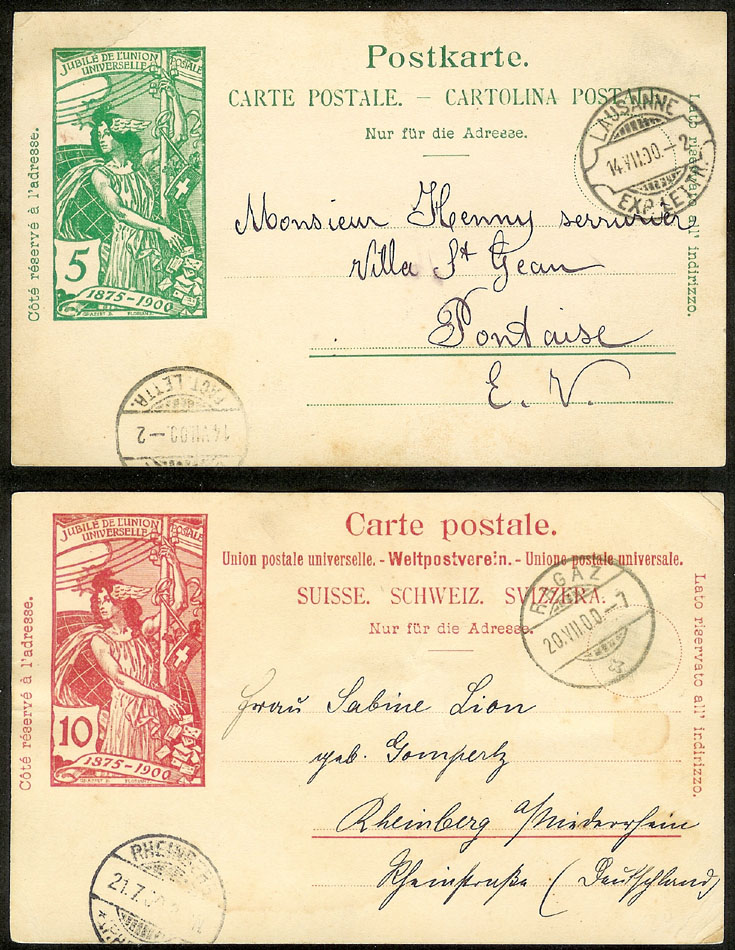 JUBILÉ DE L'UNION POSTALE
UNIVERSELLE
Postkarte.
CARTE POSTALE. – CARTOLINA POSTALE.
Nur für die Adresse.
Côté réservé à l'adresse.
Lato riservato all' indirizzo.
LAUSANNE
14.VII.00.–2
EXP. LETTR.
Monsieur Henny serrurier
Villa St Jean
Pontaise
E. V.
5
1875–1900
FACT. LETTR.
14.VII.00.–2
JUBILÉ DE L'UNION POSTALE
UNIVERSELLE
Carte postale.
Union postale universelle. - Weltpostverein. - Unione postale universale.
SUISSE. SCHWEIZ. SVIZZERA.
Nur für die Adresse.
Côté réservé à l'adresse.
Lato riservato all' indirizzo.
RAGAZ
20.VII.00.–7
Frau Sabine Lion
geb. Gompertz
Rheinberg a/Niederrhein
Rheinstraße (Deutschland)
10
1875–1900
21.7.00